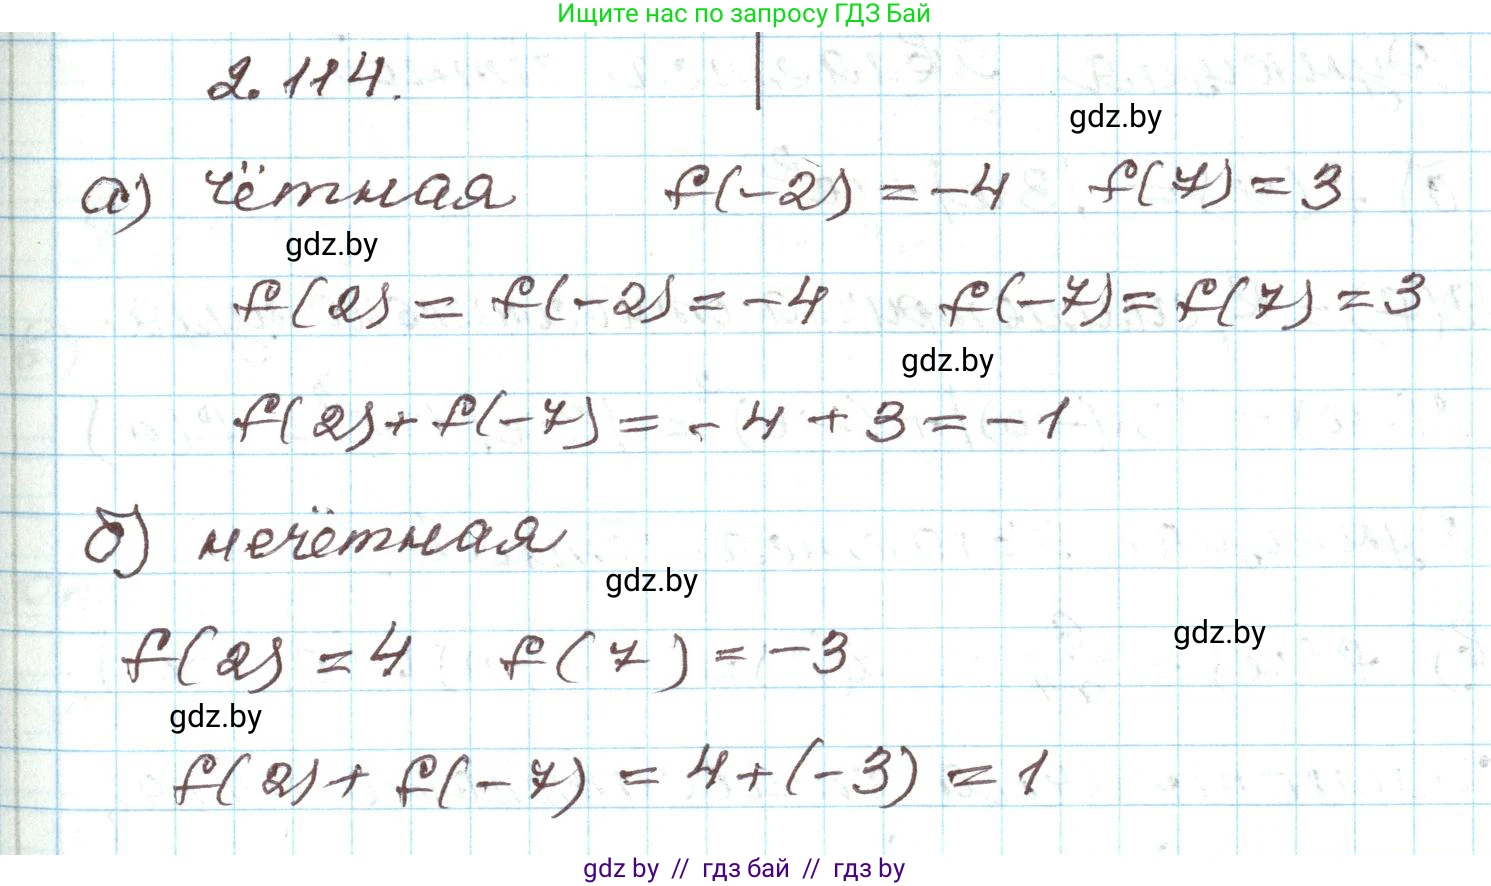 Ищите нас по запросу ГДЗ Бай
2.114.
gdz.by
а) чётная f(-2) = -4 f(7) = 3
gdz.by
f(2) = f(-2) = -4 f(-7) = f(7) = 3
gdz.by
f(2) + f(-7) = -4 + 3 = -1
б) нечётная
gdz.by
gdz.by
f(2) = 4 f(7) = -3
gdz.by
f(2) + f(-7) = 4 + (-3) = 1
gdz by // гдз бай // гдз by